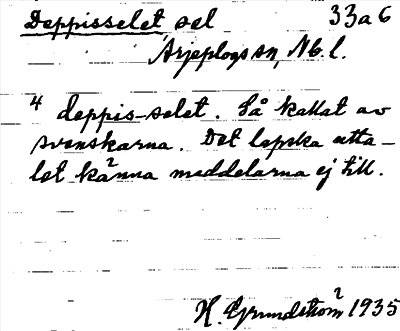 Deppisselet sel 33a6
Arjeplogs sn, Nb. l.
4 deppis-selet. Så kallat av
svenskarna. Det lapska utta-
let känna meddelarna ej till.
H. Grundström 1935